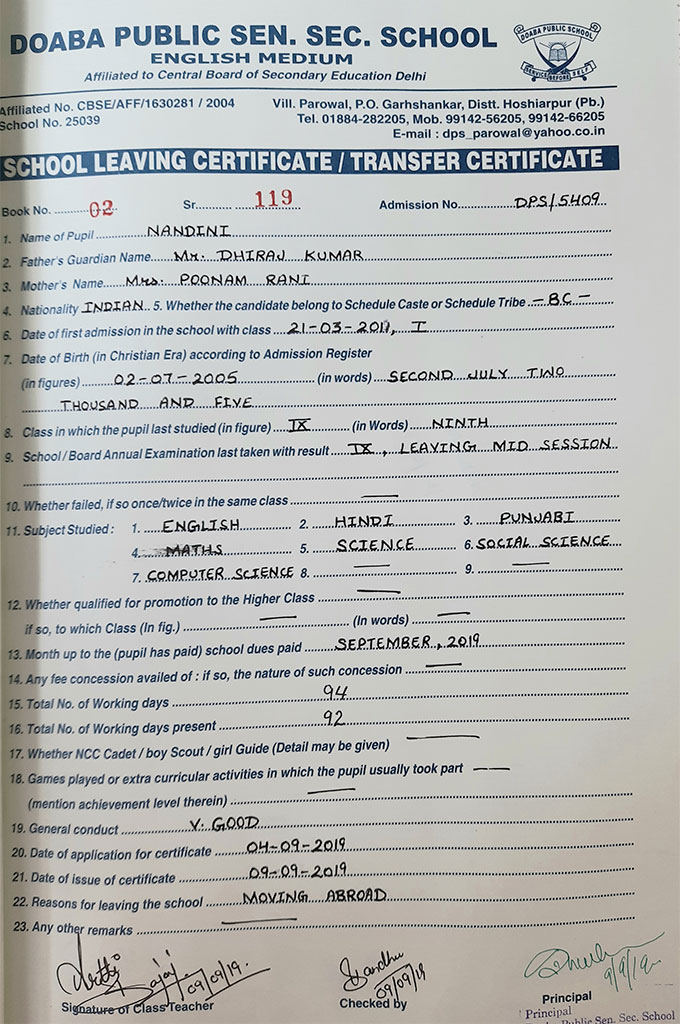 DOABA PUBLIC SEN. SEC. SCHOOL
ENGLISH MEDIUM
Affiliated to Central Board of Secondary Education Delhi
DOABA PUBLIC SCHOOL
SERVICE BEFORE SELF
Affiliated No. CBSE/AFF/1630281 / 2004
School No. 25039
Vill. Parowal, P.O. Garhshankar, Distt. Hoshiarpur (Pb.)
Tel. 01884-282205, Mob. 99142-56205, 99142-66205
E-mail : dps_parowal@yahoo.co.in
SCHOOL LEAVING CERTIFICATE / TRANSFER CERTIFICATE
Book No. 02 Sr. 119 Admission No. DPS/5409
1. Name of Pupil NANDINI
2. Father's Guardian Name Mr. DHIRAJ KUMAR
3. Mother's Name Mrs. POONAM RANI
4. Nationality INDIAN 5. Whether the candidate belong to Schedule Caste or Schedule Tribe - BC -
6. Date of first admission in the school with class 21-03-2011, I
7. Date of Birth (in Christian Era) according to Admission Register
(in figures) 02-07-2005 (in words) SECOND JULY TWO
THOUSAND AND FIVE
8. Class in which the pupil last studied (in figure) IX (in Words) NINTH
9. School / Board Annual Examination last taken with result IX, LEAVING MID SESSION
10. Whether failed, if so once/twice in the same class —
11. Subject Studied : 1. ENGLISH 2. HINDI 3. PUNJABI
4. MATHS 5. SCIENCE 6. SOCIAL SCIENCE
7. COMPUTER SCIENCE 8. — 9. —
12. Whether qualified for promotion to the Higher Class —
if so, to which Class (In fig.) — (In words) —
13. Month up to the (pupil has paid) school dues paid SEPTEMBER, 2019
14. Any fee concession availed of : if so, the nature of such concession —
15. Total No. of Working days 94
16. Total No. of Working days present 92
17. Whether NCC Cadet / boy Scout / girl Guide (Detail may be given) —
18. Games played or extra curricular activities in which the pupil usually took part —
(mention achievement level therein) —
19. General conduct V. GOOD
20. Date of application for certificate 04-09-2019
21. Date of issue of certificate 09-09-2019
22. Reasons for leaving the school MOVING ABROAD
23. Any other remarks —
09/09/19. Sandhu 09/09/19 9/9/19
Signature of Class Teacher Checked by Principal
Principal
Public Sen. Sec. School